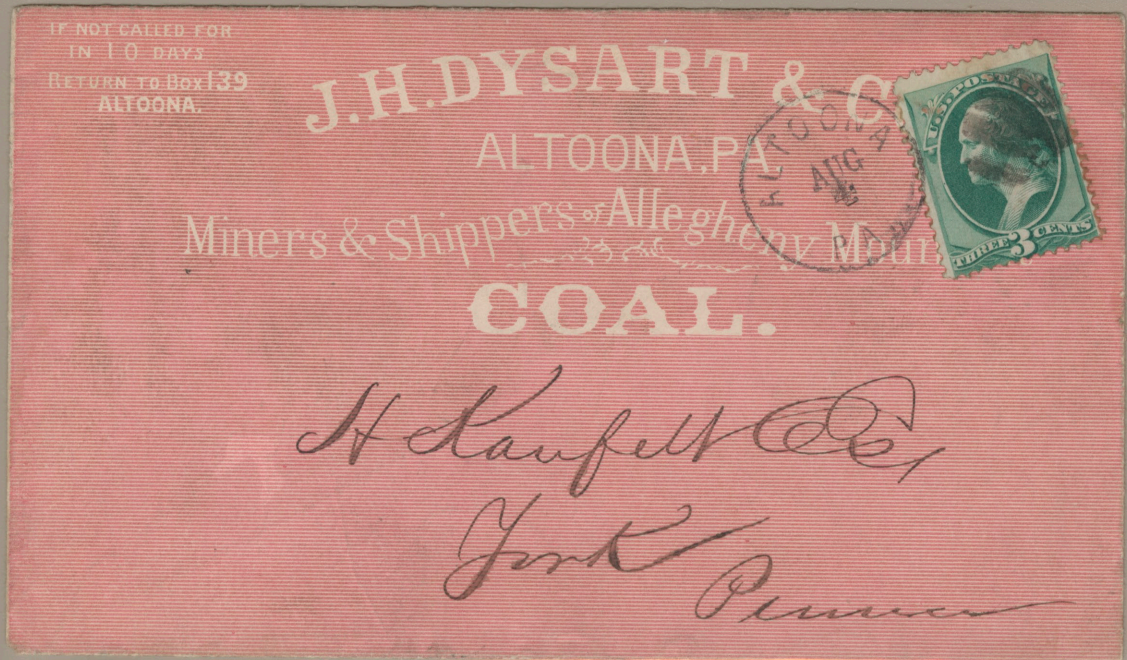 IF NOT CALLED FOR
IN 10 DAYS
RETURN TO BOX 139
ALTOONA.
J.H. DYSART & C
ALTOONA, PA.
Miners & Shippers of Allegheny Moun
COAL.
ALTOONA
AUG
PA
U.S. POSTAGE
THREE 3 CENTS
H Kaufelt
York
Penna